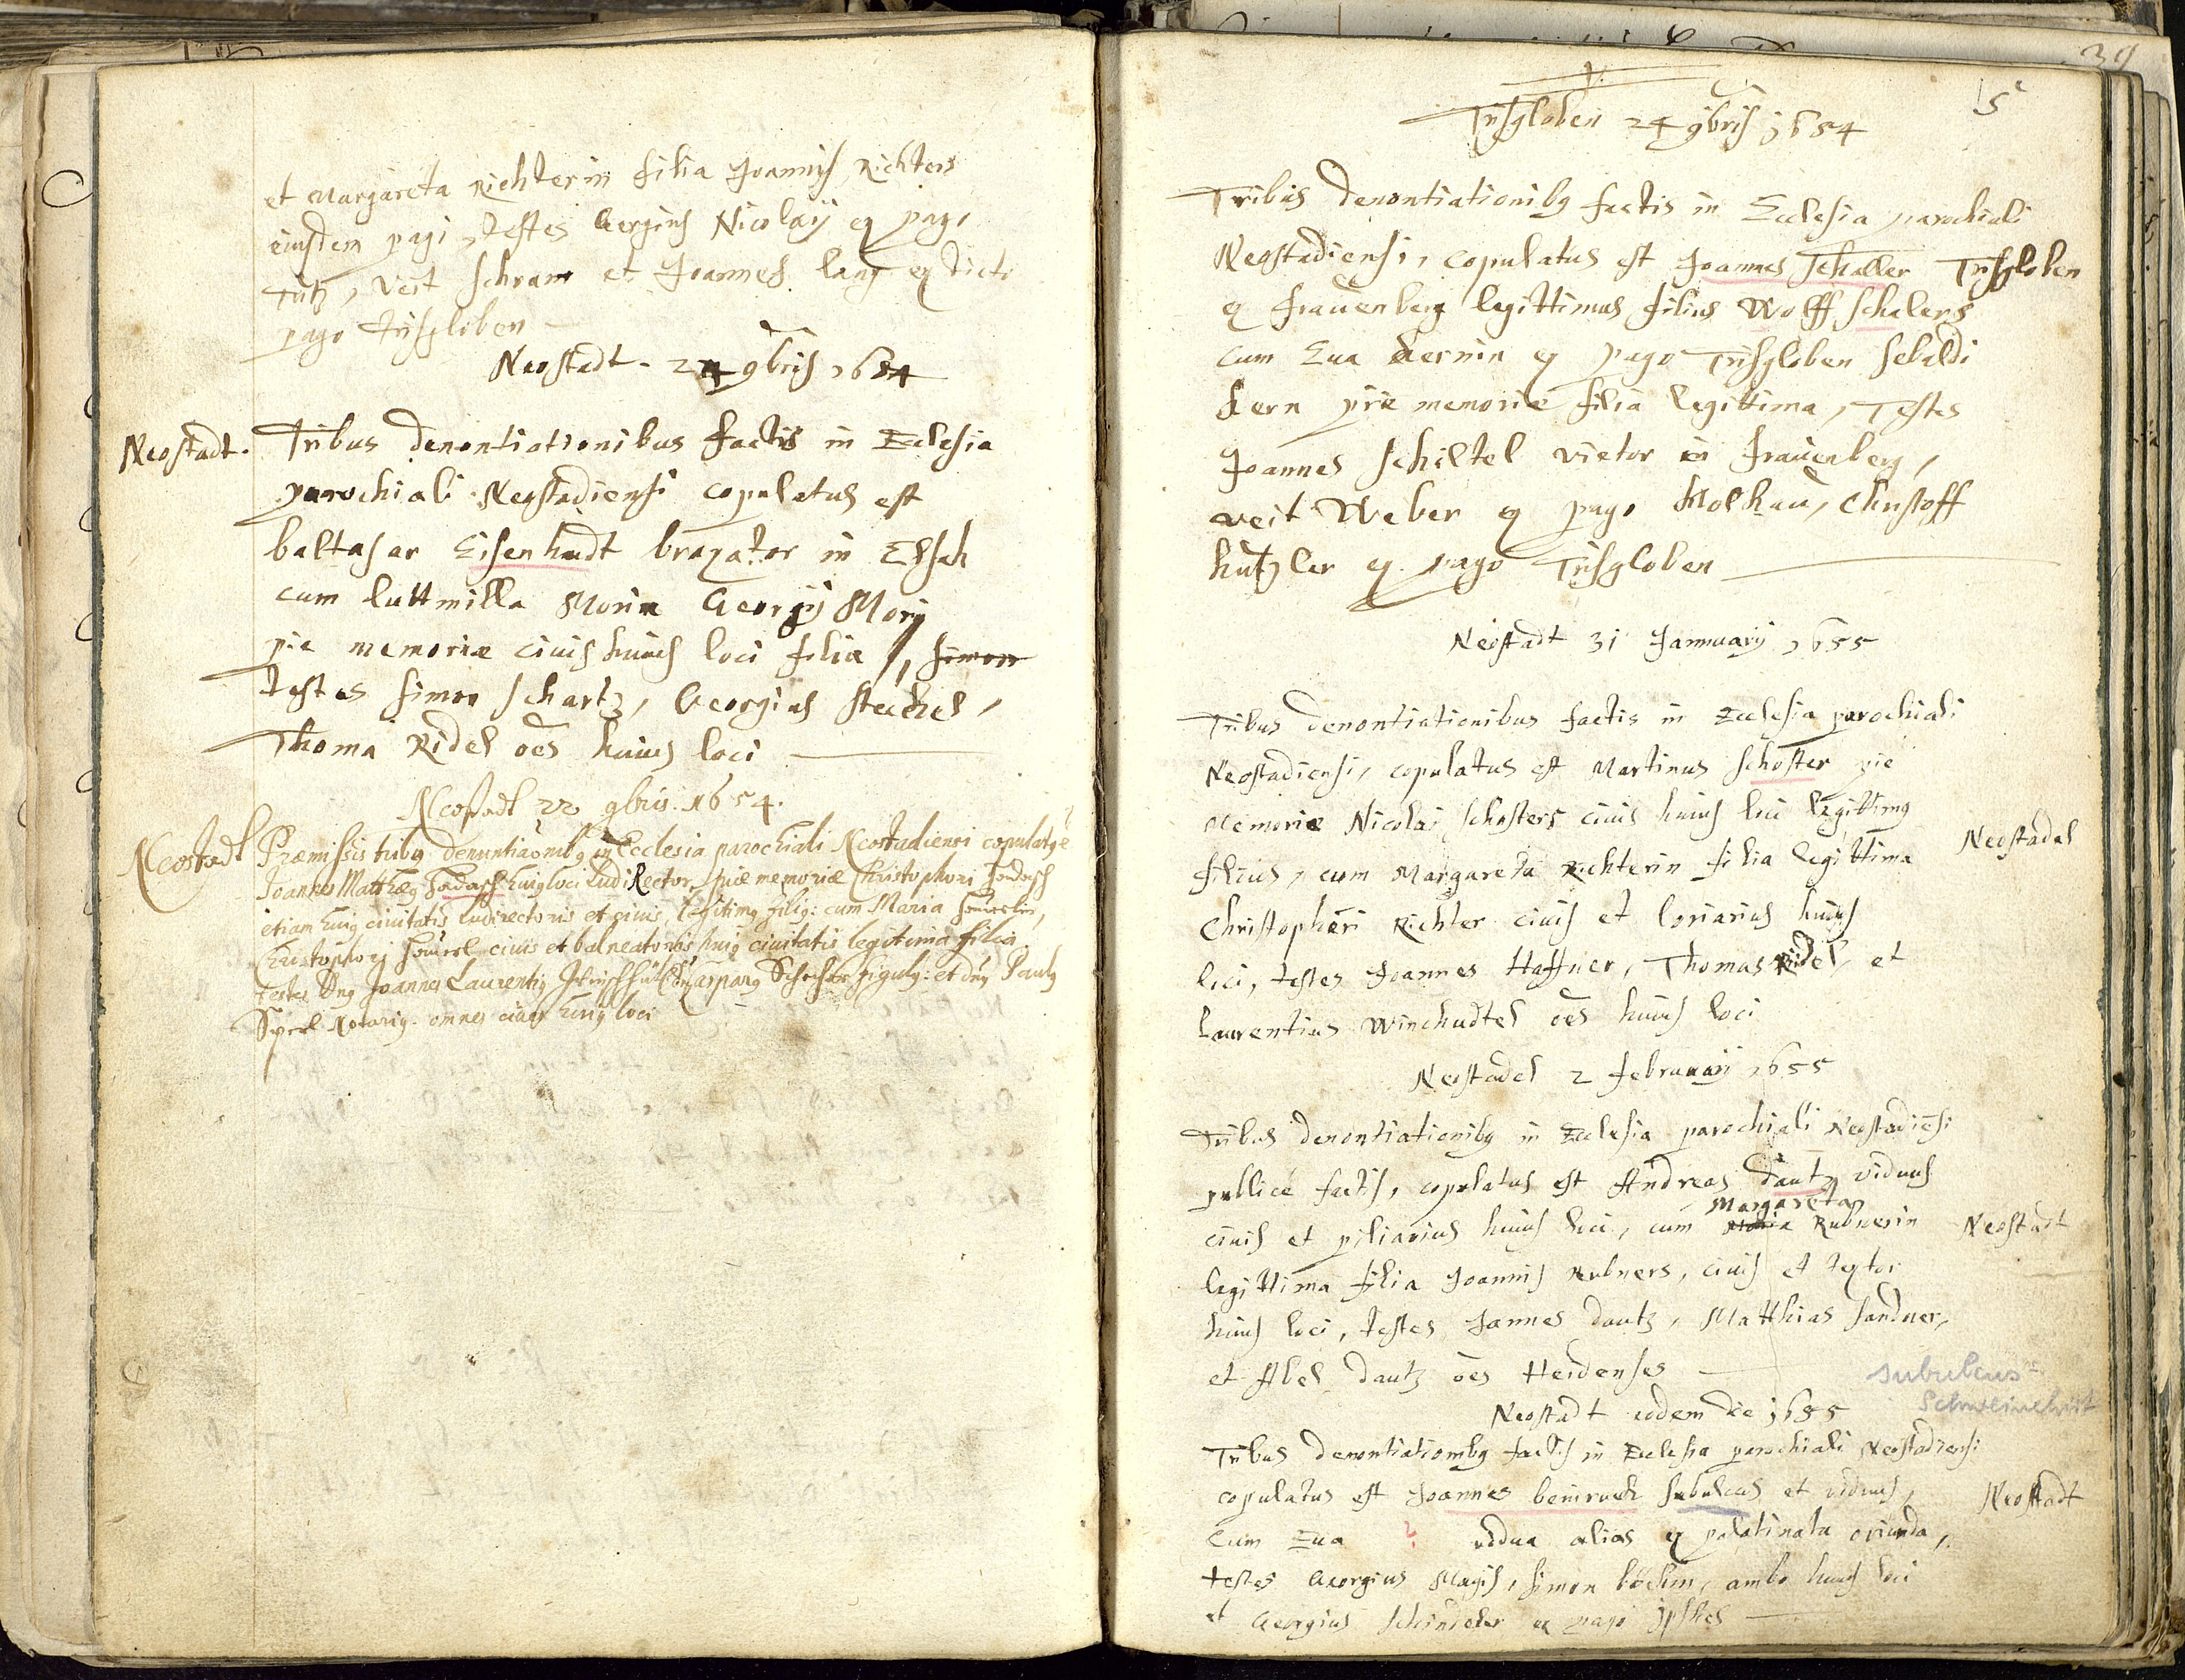 et Margareta Richterin filia Joannis Richters
eiusdem pagi, testes Georgius Nicolaij ex pago
Tütz, Veit Schram et Joannes lang ex dicto
pago Trisgloben
Neostadt. 24 9bris 1654
Neostadt.
Tribus denontiationibus factis in Ecclesia
parochiali Neostadiensi copulatus est
baltasar Eisenhudt braxator in Elsch
cum luttmilla Morin Georgij Morij
pie memoriæ civis huius loci filia, Simon
testes Simon Schartz, Georgius Steckel,
Thoma Ridel oēs huius loci
Neostadt 22 9bris. 1654.
Neostadt
Præmissis tribq denuntiaōnibq in Ecclesia parochiali Neostadiensi copulatq ē
Joannes Matthæq huiq loci ludiRector, piæ memoriæ Christophori
etiam huiq ciuitatis ludirectoris et ciuis, legitimq filiq: cum Maria
Christophori ciuis et balneatoris huiq ciuitatis legitima filia.
testes Dnq Joannes Laurentiq Casparq figulq: et dnq Paulq
Sperl Notariq. omnes ciues huiq loci
39
15
V.
Trisgloben 24 9bris 1654
Tribus denontiationibq factis in Ecclesia parochiali
Neostadiensi, copulatus est Joannes Schaller
Trisgloben
ex Frauenberg legittimus filius Wolff Schalers
cum Eua Kernin ex pago Trisgloben Sebaldi
Kern piæ memoriæ filia legittima, Testes
Joannes Schiltel vietor in Frauenberg,
veit Weber ex pago Molkau, Christoff
hutzler ex pago Trisgloben
Neostadt 31 Jannuarij 1655
Tribus denontiationibus factis in Ecclesia parochiali
Neostadiensi, copulatus est Martinus Schoster pie
Memoriæ Nicolai Schosters ciuis huius loci legittimq
Neostadel
filius, cum Margareta Richterin filia legittima
Christopheri Richter ciuis et coriarius huius
loci, testes Joannes Haffner, Thomas Ridel, et
Laurentius Winchudtel oēs huius loci
Neostadel 2 Februarij 1655
Tribus denontiationibq in Ecclesia parochiali Neostadiēsi
publice factis, copulatus est Andreas dautz viduus
Margareta
ciuis et piliarius huius loci, cum Maria Rubnerin
Neostadt
legittima filia Joannis Rubners, ciuis et textor
huius loci, testes Joannes dautz, Matthias Sandner,
et Abel dautz oēs Heidenses
subulcus =
Schweinehirt
Neostadt eodem die 1655
Tribus denontiationibq factis in Ecclesia parochiali Neostadiensi
copulatus est Joannes beinruck subulcus et viduus,
Neostadt
cum Eua ? vidua alias ex palatinatu oriunda,
testes Georgius Magis, Simon böchm, ambo huius loci
et Georgius Schindler ex pago